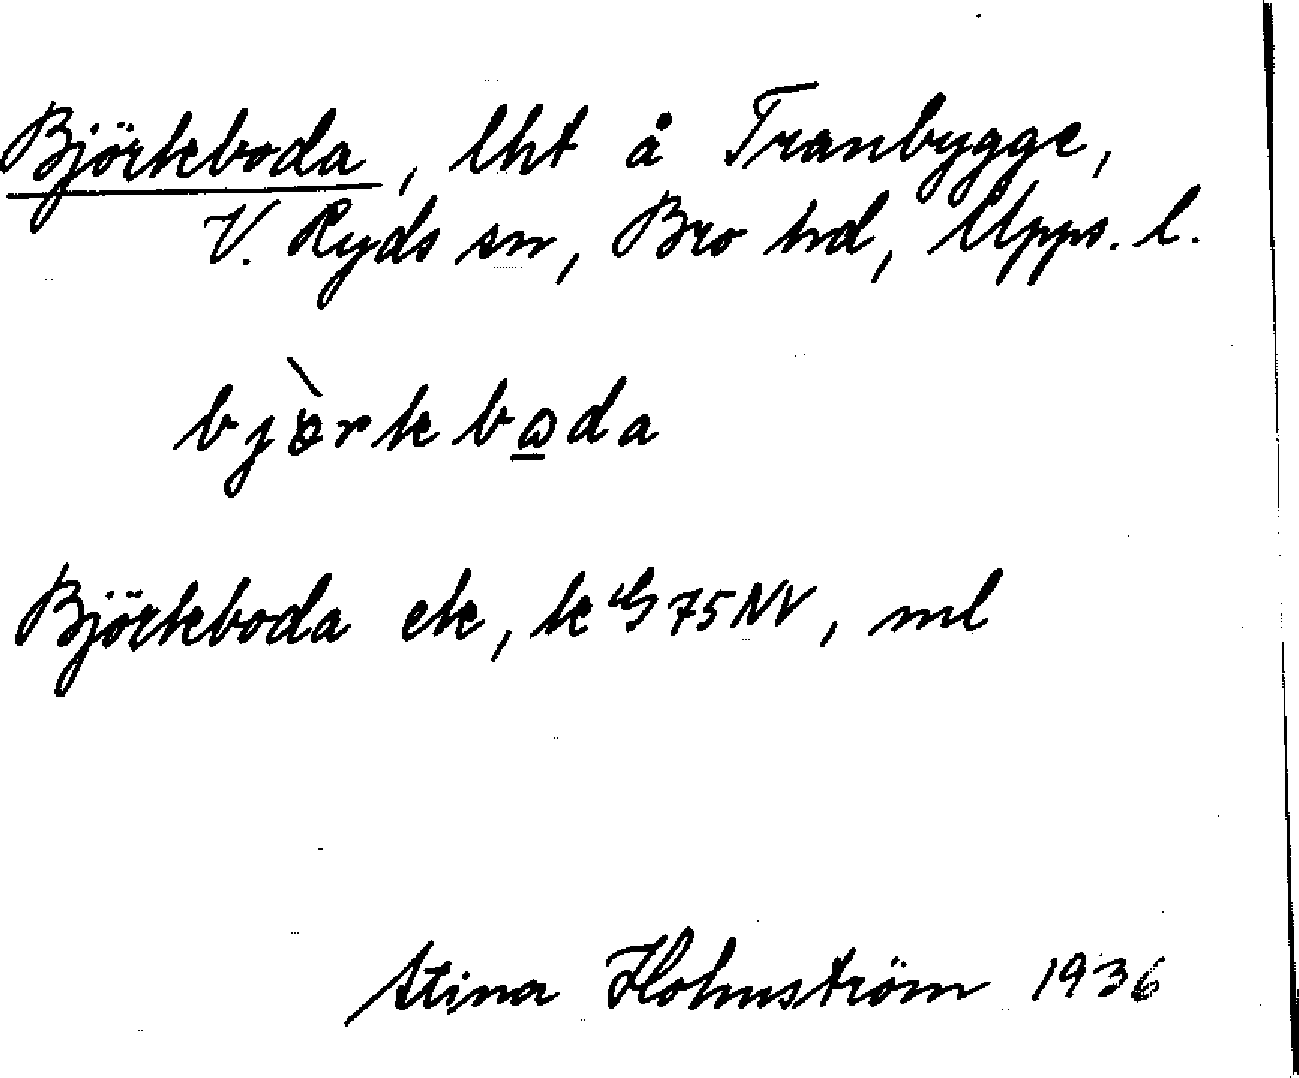 Björkeboda, lht å Tranbygge,
V. Ryds sn, Bro hd, Upps. l.
bjὸrkbωda
Björkeboda ek, k 75 NV, ml
Stina Holmström 1936